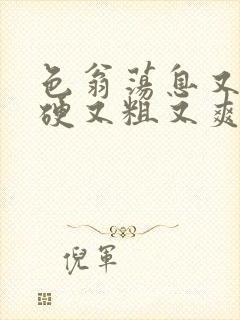 色翁荡息又
硬又粗又爽
倪军